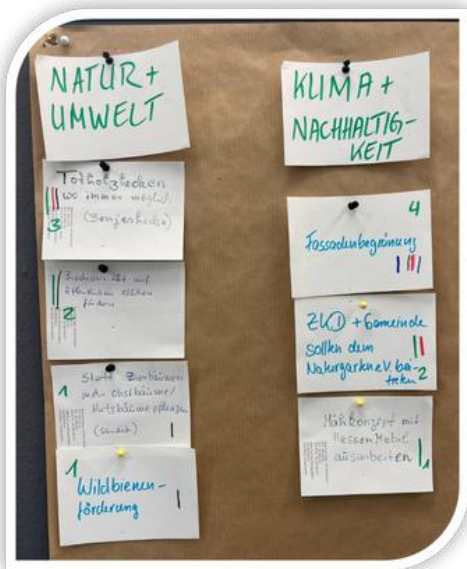 NATUR +
UMWELT
Totholzhecken
wo immer möglich
(Benjeshecke)
3
Biodiversität auf
öffentlichen Flächen
fördern
2
1
Statt Zierbäumen
mehr Obstbäume/
Nutzbäume pflanzen
1
Wildbienen-
förderung
KLIMA +
NACHHALTIG-
KEIT
4
Fassadenbegrünung
+ Gemeinde
sollten dem
Naturgarten e.V. bei-
treten
2
Mähkonzept mit
HessenMobil
ausarbeiten
1